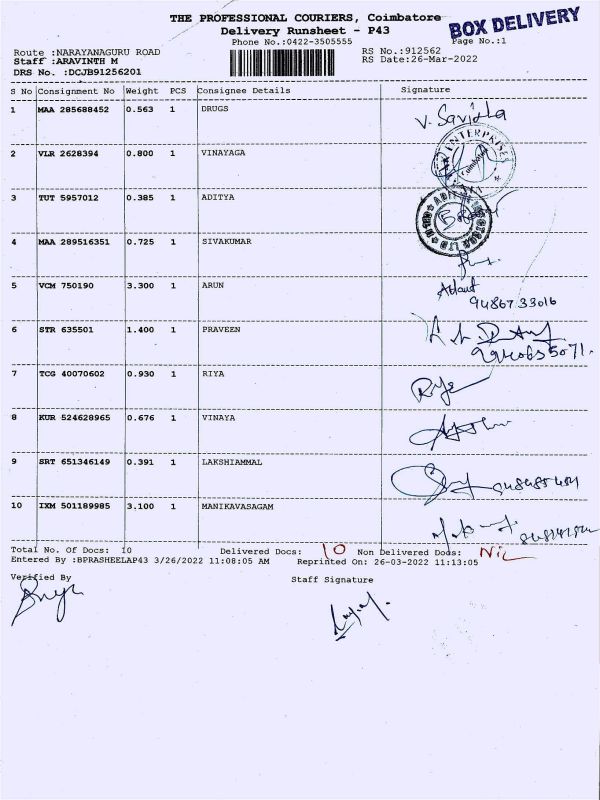 THE PROFESSIONAL COURIERS, Coimbatore
BOX DELIVERY
Delivery Runsheet - P43
Phone No.:0422-3505555
Page No.:1
Route :NARAYANAGURU ROAD
RS No.:912562
Staff :ARAVINTH M
RS Date:26-Mar-2022
DRS No. :DCJB91256201
S No Consignment No Weight PCS Consignee Details Signature
1 MAA 285688452 0.563 1 DRUGS V. Savitha
2 VLR 2628394 0.800 1 VINAYAGA
ENTERPRISES
Coimbatore
3 TUT 5957012 0.385 1 ADITYA
4 MAA 289516351 0.725 1 SIVAKUMAR
5 VCM 750190 3.300 1 ARUN
94867 33016
6 STR 635501 1.400 1 PRAVEEN
7 TCG 40070602 0.930 1 RIYA Riya
8 KUR 524628965 0.676 1 VINAYA
9 SRT 651346149 0.391 1 LAKSHIAMMAL
10 IXM 501189985 3.100 1 MANIKAVASAGAM
Total No. Of Docs: 10 Delivered Docs: 10 Non Delivered Dods: Nil
Entered By :BPRASHEELAP43 3/26/2022 11:08:05 AM Reprinted On: 26-03-2022 11:13:05
Verified By Staff Signature